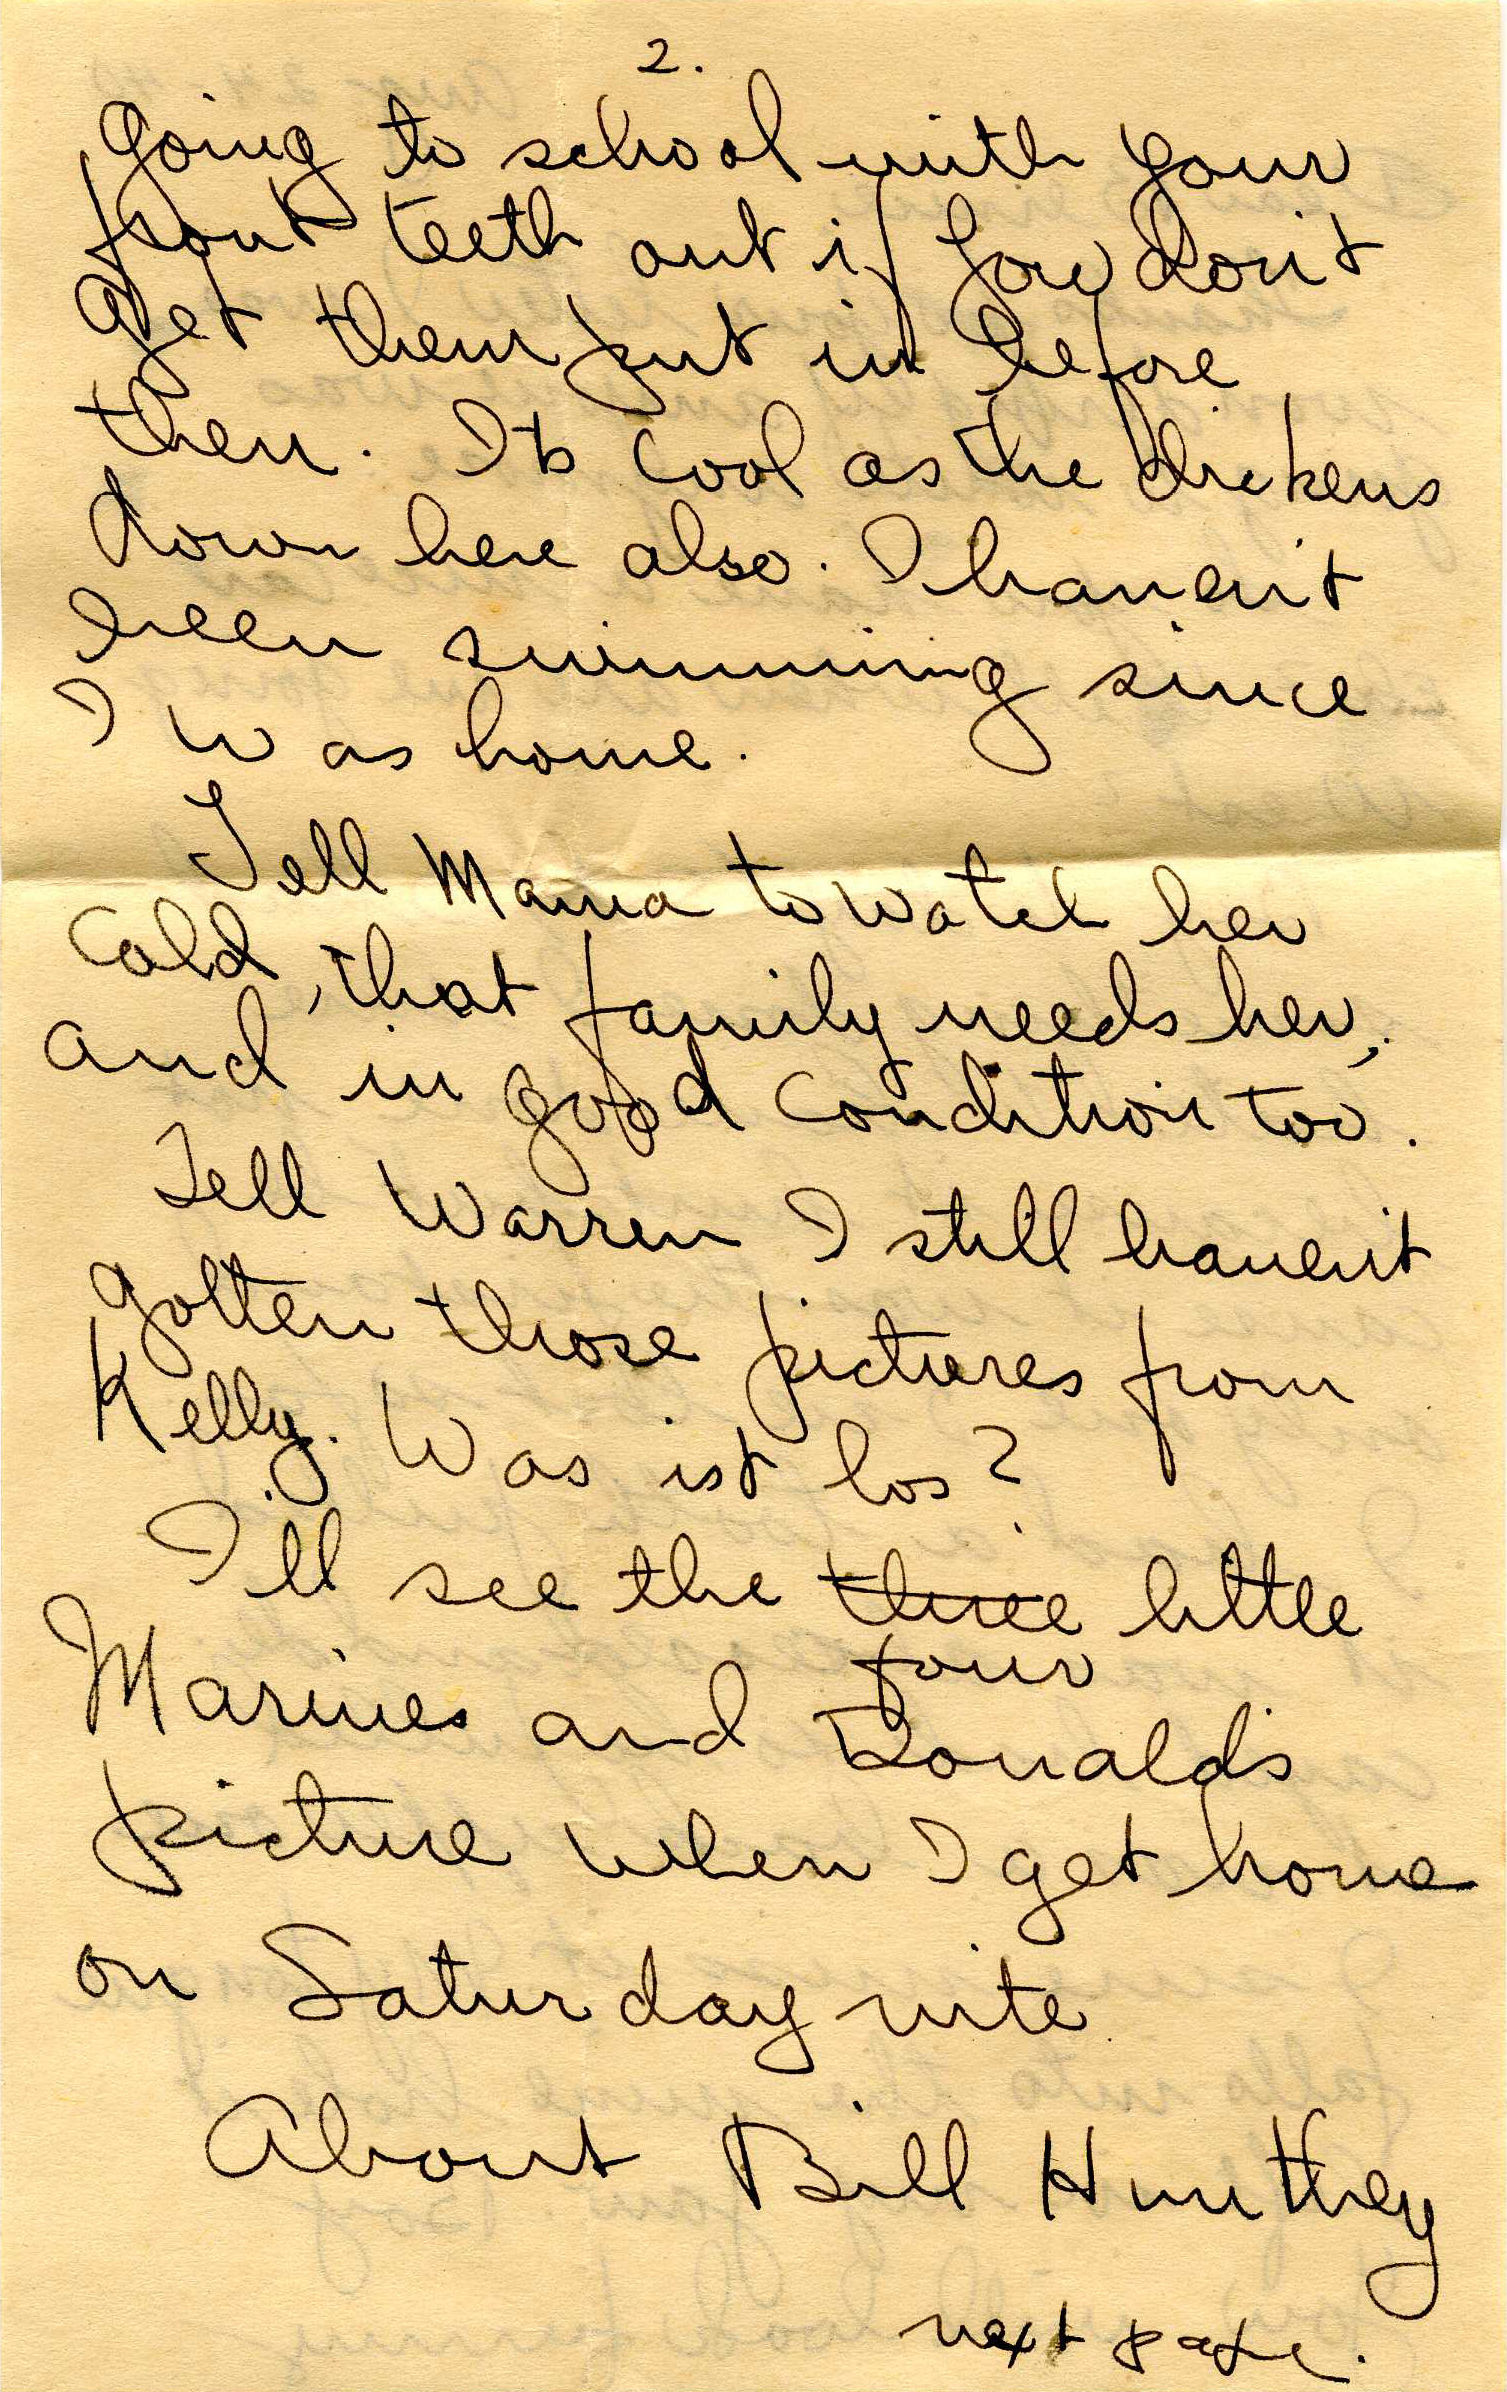 2.
going to school with your
front teeth out if you don't
get them put in before
then. It's cool as the dickens
down here also. I haven't
been swimming since
I was home.
Tell Mama to watch her
cold, that family needs her,
and in good condition too.
Tell Warren I still haven't
gotten those pictures from
Kelly. Was ist los?
I'll see the three little
four
Marines and Donald's
picture when I get home
on Saturday nite
About Bill
next page.